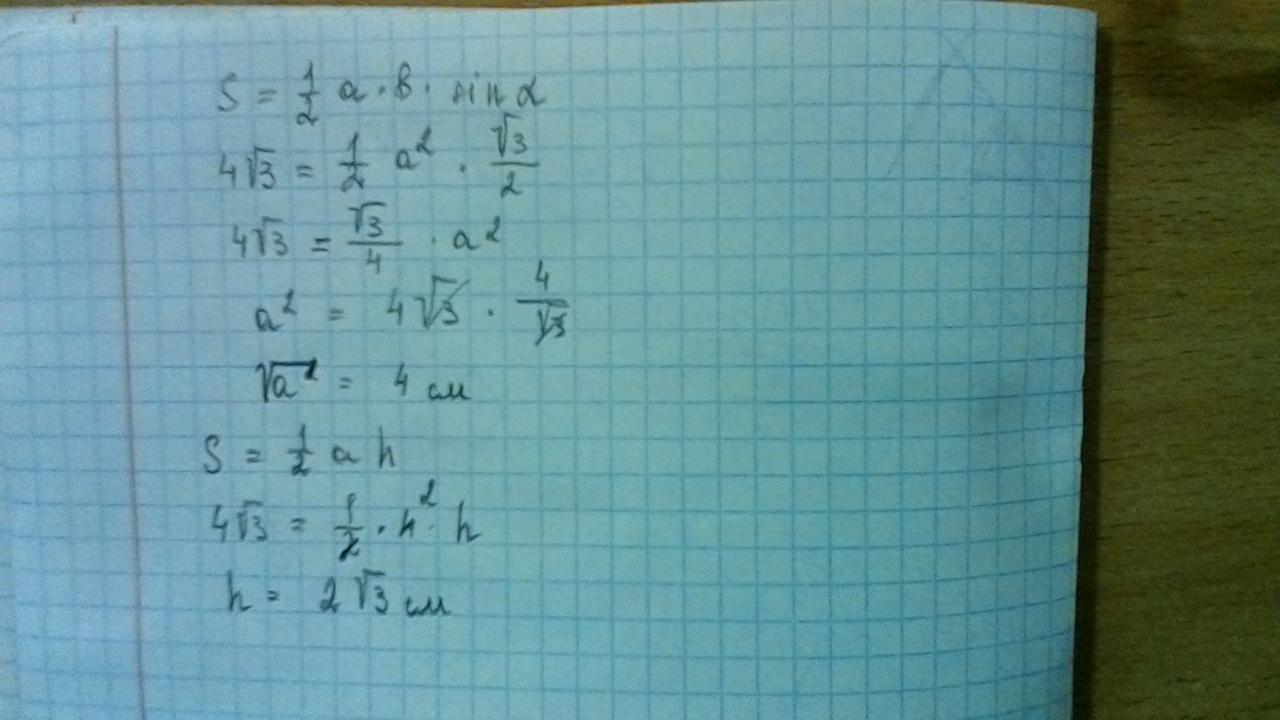 S = 1/2 a · в · sin α
4√3 = 1/2 a² · √3/2
4√3 = √3/4 · a²
a² = 4√3 · 4/√3
√a² = 4 см
S = 1/2 a h
4√3 = 1/2 · 4² · h
h = 2√3 см